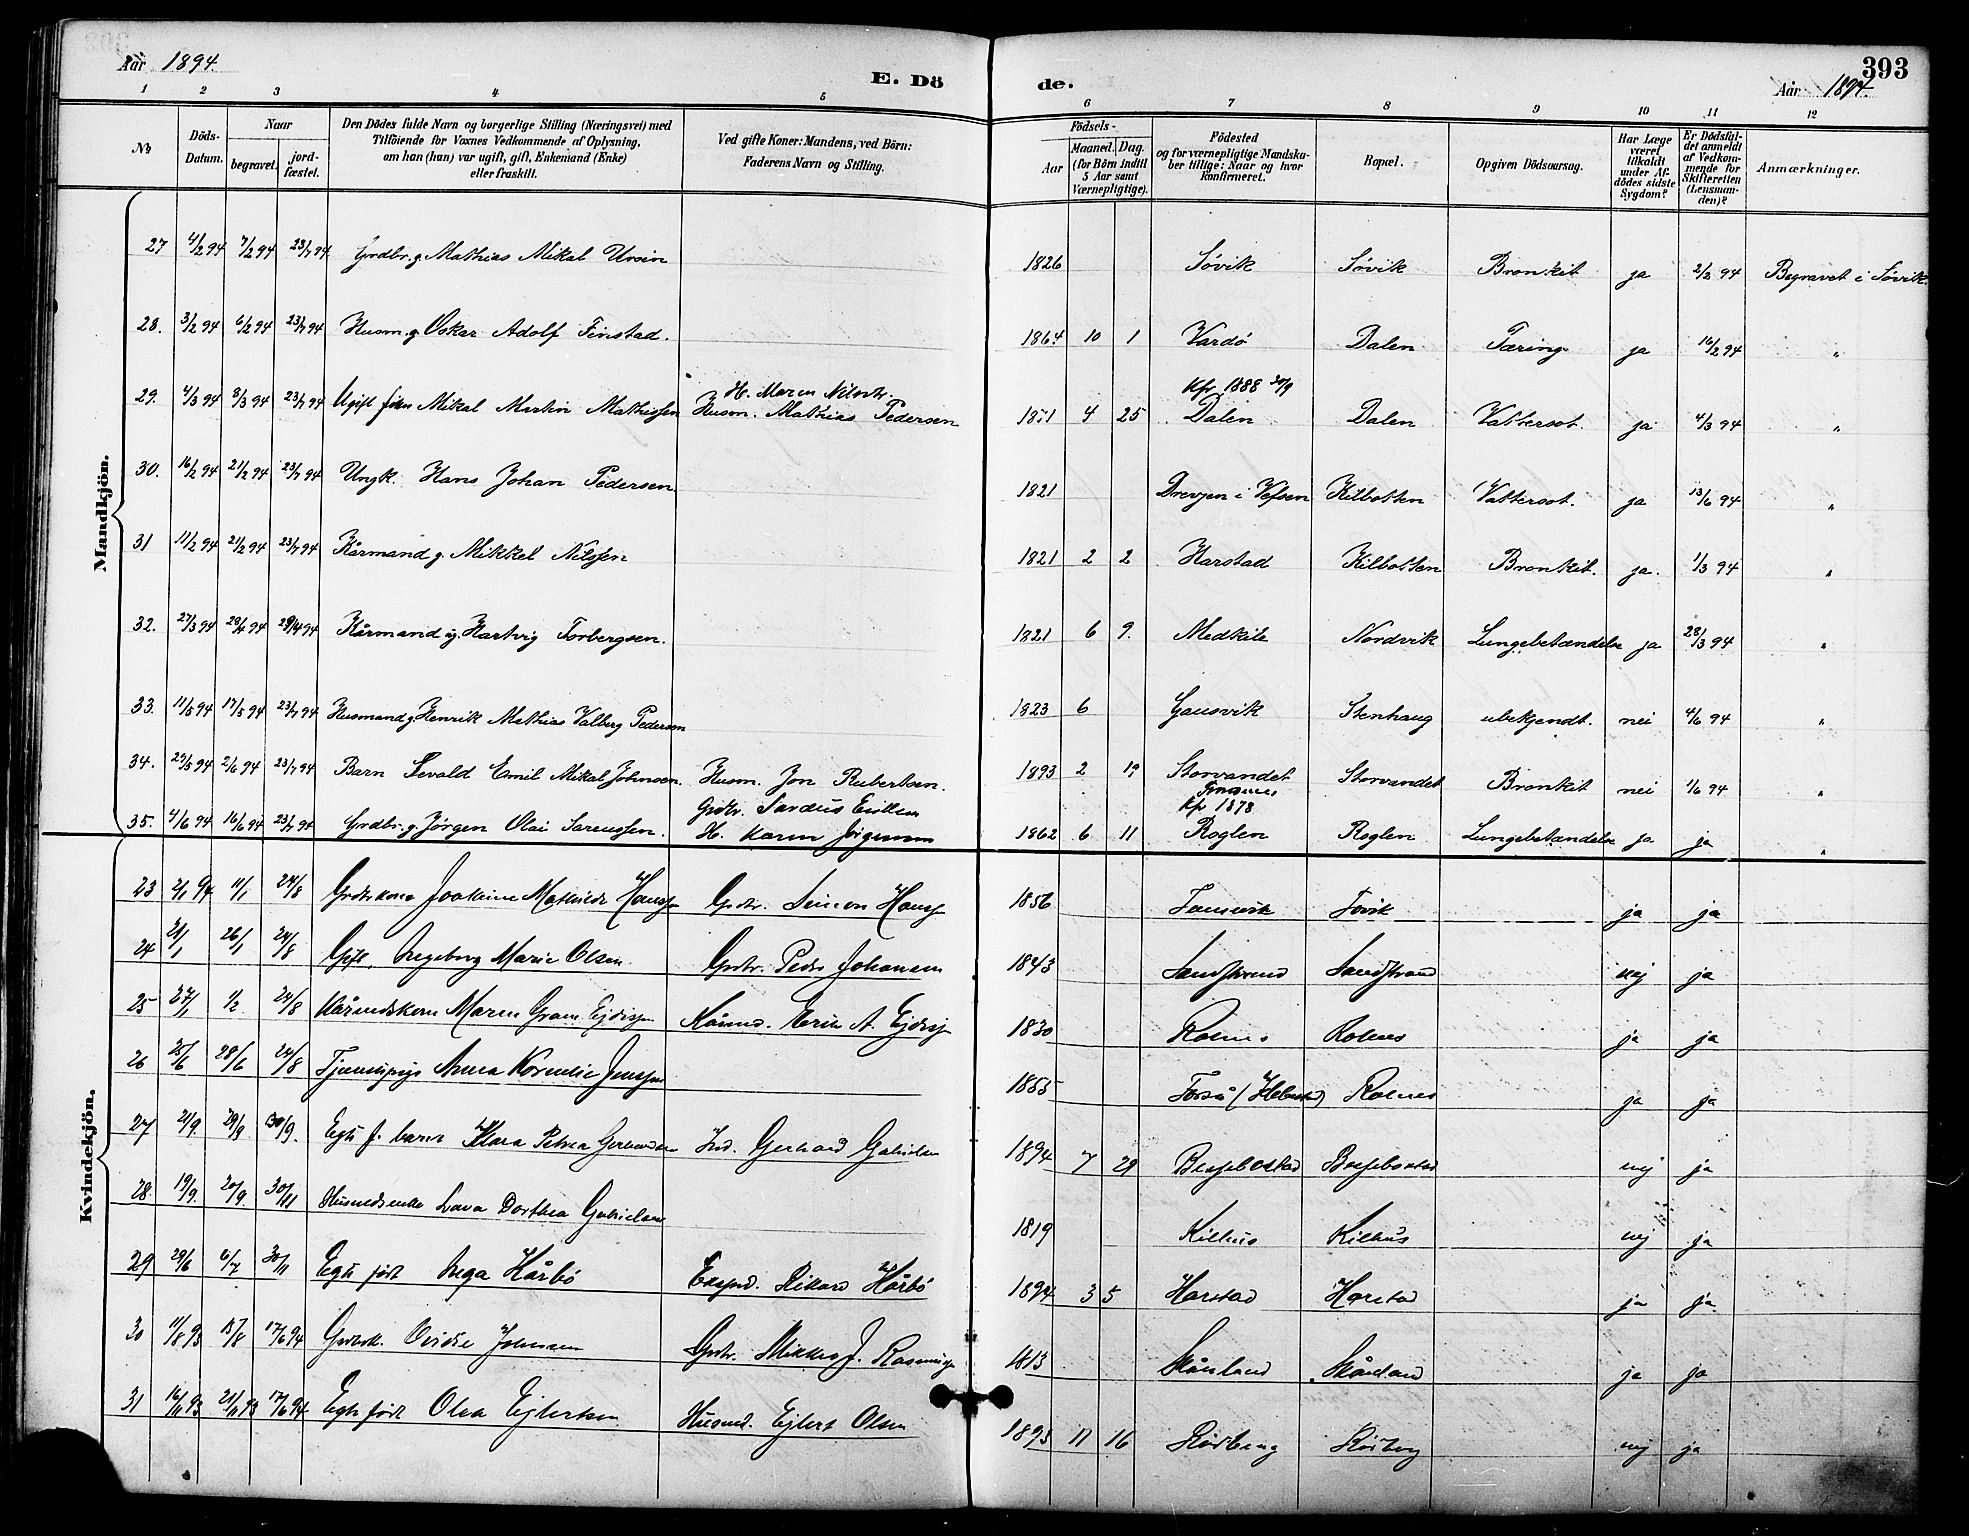 Aar 1894. E. Dö de. Aar 1894. 393
1 2 3 4 5 6 7 8 9 10 11 12
No
Döds-Datum.
Naar begravet. jordfæstet.
Den Dödes fulde Navn og borgerlige Stilling (Næringsvei) med
Tilföiende for Voxnes Vedkommende af Oplysning,
om han (hun) var ugift, gift, Enkemand (Enke)
eller fraskilt.
Ved gifte Koner: Mandens, ved Börn:
Faderens Navn og Stilling.
Födsels-
Aar Maaned. Dag.
(for Börn indtil
5 Aar samt
Værnepligtige).
Födested
og for værnepligtige Mandska-
ber tillige: Naar og hvor
konfirmeret.
Bopæl.
Opgiven Dödsaarsag.
Har Læge
været
tilkaldt
under Af-
dödes sidste
Sygdom?
Er Dödsfal-
det anmeldt
af Vedkom-
mende for
Skifteretten
(Lensman-
den)?
Anmærkninger.
Mandkjön.
27 4/2 94 7/2 94 23/7 94 Grdbr. g. Mathias Mikal Ursin 1826 Søvik Søvik Bronkit ja 2/3 94 Begravet i Søvik.
28. 3/2 94 6/2 94 23/7 94 Husm. g. Oskar Adolf Finstad. 1864 10 1 Vardø Dalen Tæring ja 16/2 94 "
H. Maren Nilsdtr. Kfr. 1888 30/9
29. 4/3 94 8/3 94 23/7 94 Ugift Mikal Martin Mathissen Husm. Mathias Pedersen 1851 4 25 Dalen Dalen Vattersot. ja 4/3 94 "
30. 16/2 94 21/2 94 23/7 94 Ungk. Hans Johan Pedersen 1821 Drevjen i Vefsen Kilbotten Vattersot. ja 13/6 94 "
31 11/2 94 21/2 94 23/7 94 Kårmand g. Mikkel Nilssen 1821 2 2 Harstad Kilbotten Bronkit. ja. 1/3 94 "
32. 27/3 94 94 94 Kårmand g. Hartvig Torbergsen. 1821 6 9. Medkile Nordvik Lungebetændelse ja 28/3 94 "
33. 11/5 94 17/5 94 23/7 94 Husmand g. Henrik Mathias Valberg Pedersen 1823 6 Gausvik Stenhaug ubekjendt. nei 4/6 94 "
34. 29/5 94 2/6 94 23/7 94 Barn Sevald Emil Mikal Johnsen. Husm. Jon Rubertsen. 1893 2 19 Storvandet Storvandet Bronkit nei 1/6 94 "
Grdbr. Kfr 1878
35. 4/6 94 16/6 94 23/7 94 Grdbr. g. Jørgen Olai Sarenssen. H. Karen 1862 6 11 Roglen Roglen Lungebetændelse ja ja "
Kvindekjön.
23 2/1 94 11/1 24/8 Joakine Mathilde Hanss Grdbr. Simon Hanss 1856 ja ja
24 21/1 26/1 24/8 Gift. Ingeborg Marie Olsen Grdbr. Peder Johansen 1843 Sandstrand Sandstrand nej ja
25 27/1 1/2 24/8 Maren Gram Kårmd. A. 1830 Rolnes Rolnes ja ja
26 25/6 28/6 24/8 Anna Kornelie Jenssen Rolnes ja ja
27 21/9 29/9 30/9. Egte f. barn Klara Petrea Ind. Gerhard Gabrielsen 1894 7 29 Bessebostad Bessebostad nej ja
28. 19/9. 20/9. 30/11 Husmdsenke Lava Dorthea Gabrielsen 1819 Kilhus Kilhus nej ja
29 29/6 6/7 30/11 Egte født Inga Hårbö Rikard Hårbö 1894 3 5 Harstad Harstad ja ja
30 11/8 93 15/8 17/6 94 Ovidie Johnsen Grdbr. Mikkel J. 1813 Skårland ja ja
31 16/11 93 21/11 93 17/6 94 Egte født Olea Ejlertsen Husmd. Ejlert Olsen 1893 11 16 Rödberg Rödberg nej ja